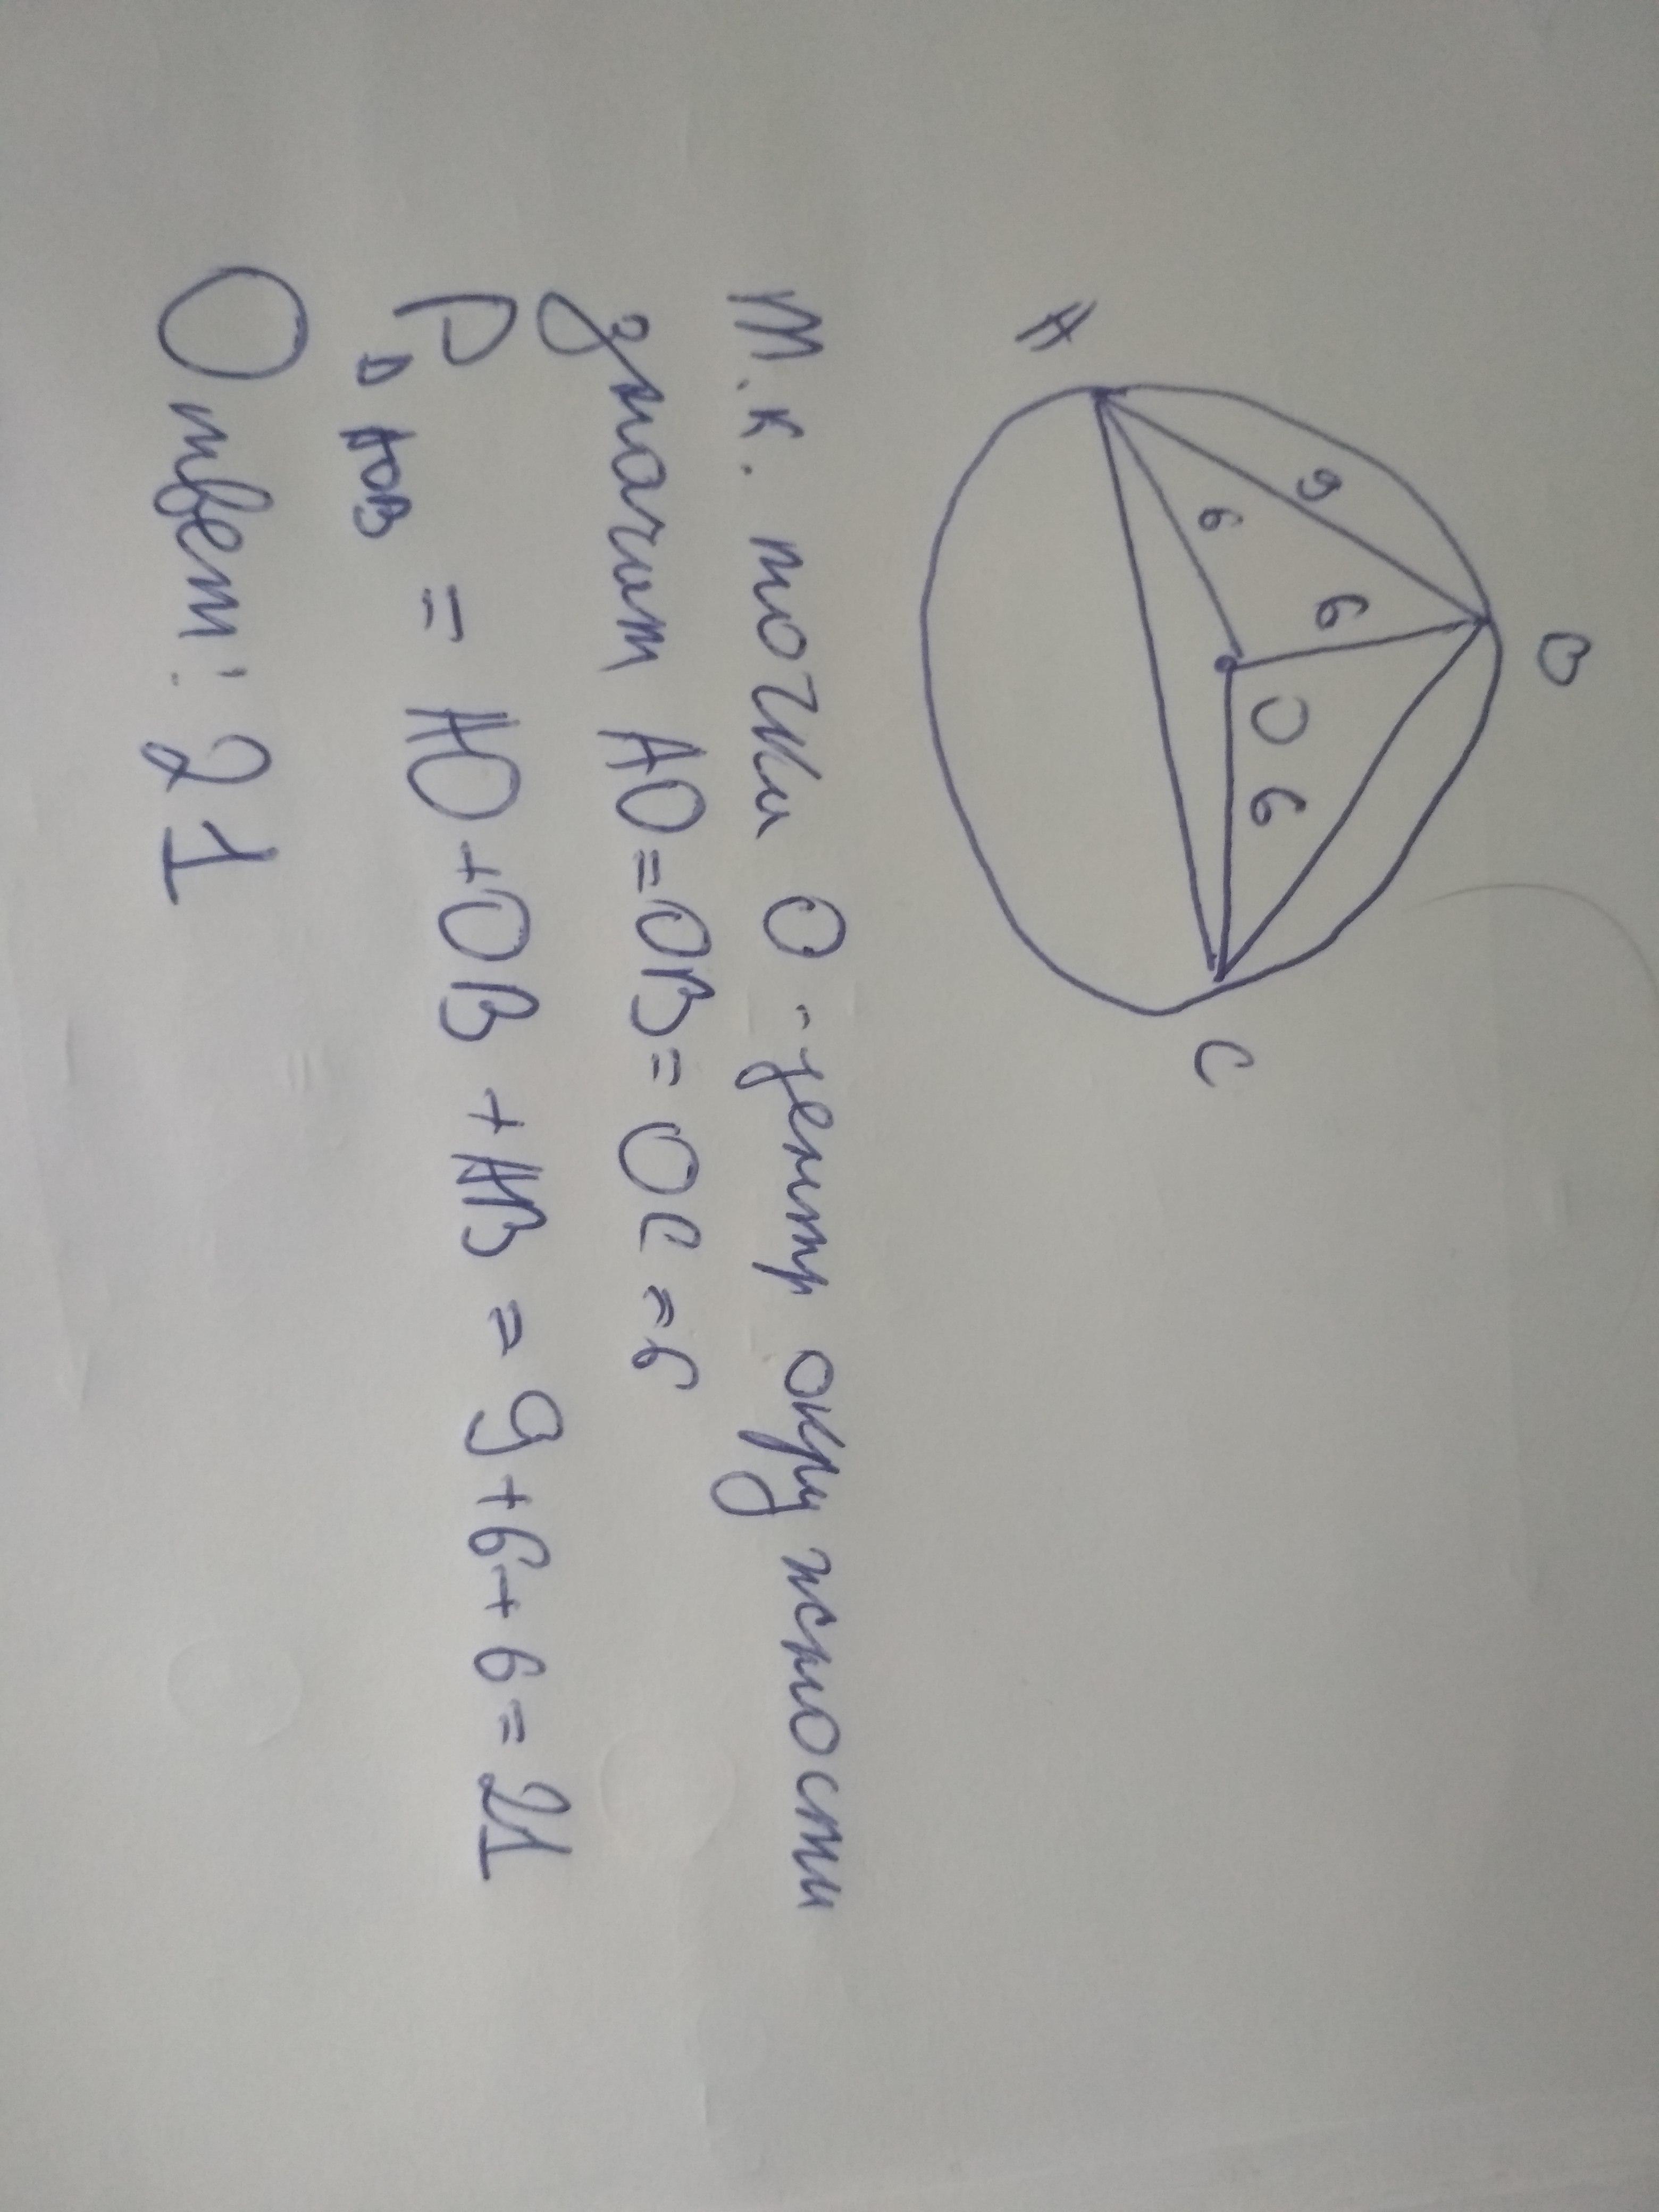 B
9
6
6
A
O
6
C
т.к. точки O - центр окружности
значит AO=OB=OC=6
P△AOB = AO+OB+AB=9+6+6=21
Ответ: 21